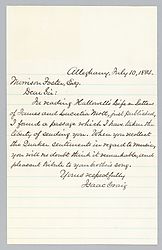 Allegheny, July 10, 1884.
Morrison Foster, Esq.
Dear Sir:
In reading Hallowell's Life & Letters
of James and Lucretia Mott, just published,
I found a passage which I have taken the
liberty of sending you. When you recollect
the Quaker sentiments in regard to music,
you will no doubt think it remarkable, and
pleasant tribute to your brother's song.
Yours respectfully,
Isaac Craig